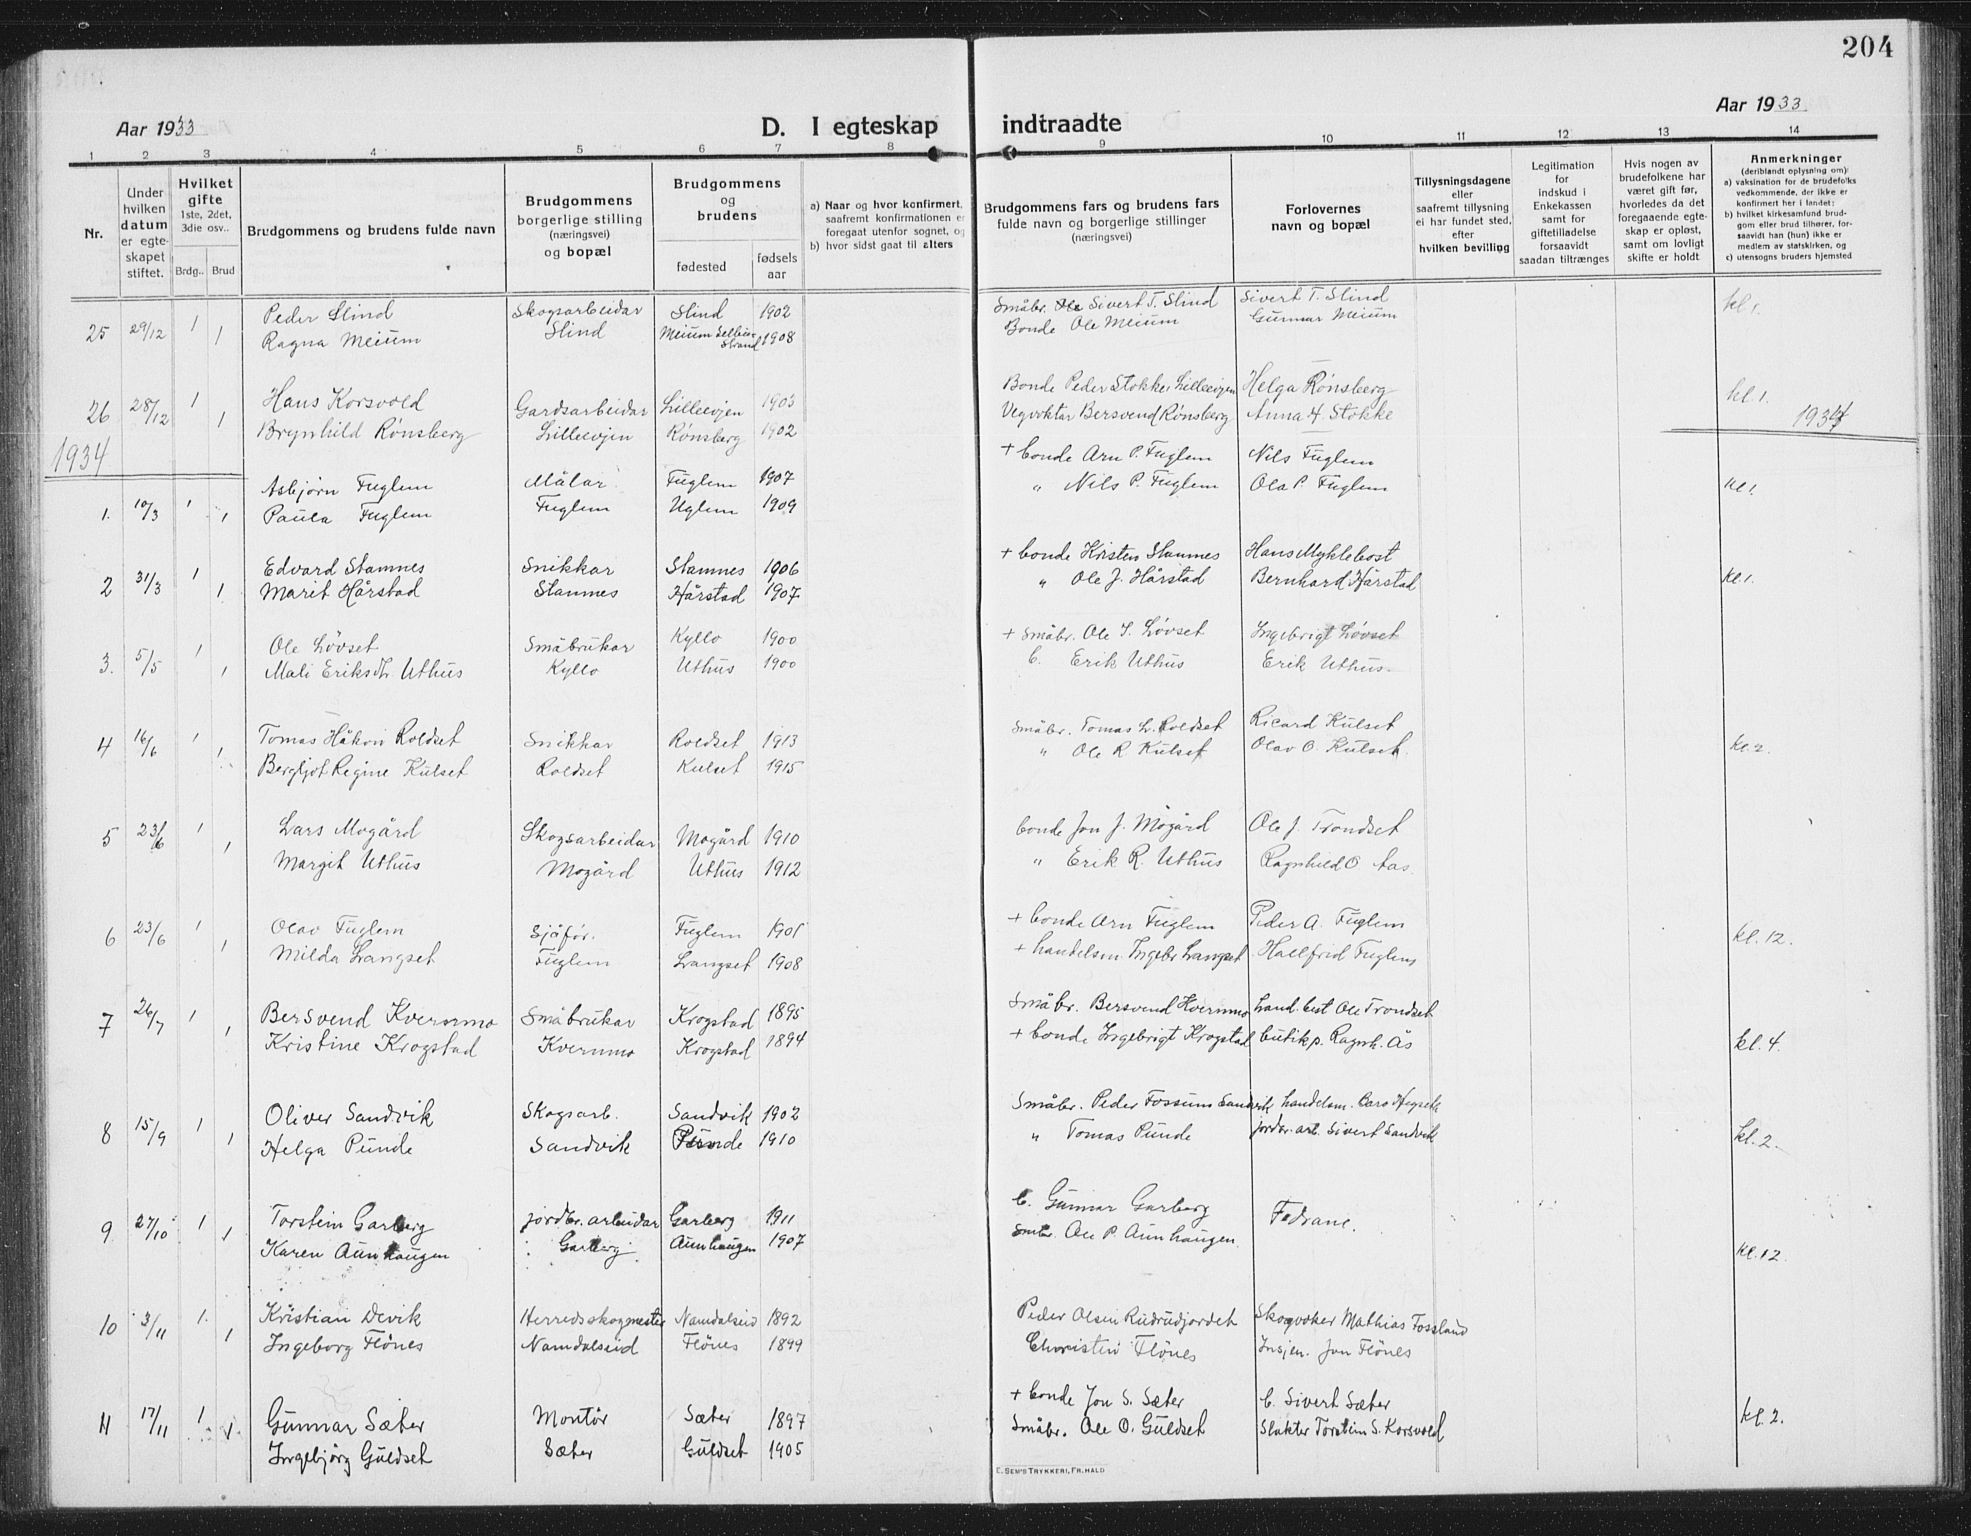 204
Aar 1933
D. I egteskap indtraadte
Aar 1933
1 2 3 4 5 6 7 8 9 10 11 12 13 14
Nr.
Under hvilken datum er egteskapet stiftet.
Hvilket gifte 1ste, 2det, 3die osv..
Brdg.. Brud
Brudgommens og brudens fulde navn
Brudgommens borgerlige stilling (næringsvei) og bopæl
Brudgommens og brudens
fødested
fødsels aar
a) Naar og hvor konfirmert, saafremt konfirmationen er foregaat utenfor sognet, og
b) hvor sidst gaat til alters
Brudgommens fars og brudens fars fulde navn og borgerlige stillinger (næringsvei)
Forlovernes navn og bopæl
Tillysningsdagene eller saafremt tillysning ei har fundet sted, efter hvilken bevilling
Legitimation for indskud i Enkekassen samt for giftetilladelse forsaavidt saadan tiltrænges
Hvis nogen av brudefolkene har været gift før, hvorledes da det foregaaende egteskap er opløst, samt om lovligt skifte er holdt
Anmerkninger (deriblandt oplysning om):
a) vaksination for de brudefolks vedkommende, der ikke er konfirmert her i landet;
b) hvilket kirkesamfund brudgom eller brud tilhører, forsaavidt han (hun) ikke er medlem av statskirken, og
c) utensogns bruders hjemsted
25 29/12 1 Peder Slind Skogsarbeidar Slind 1902 Småbr. Ole Sivert T. Slind Sivert T. Slind kl 1.
1 Ragna Meium Slind Meium Selbustrand 1908 Bonde Ole Meium Gunnar Meium
26 28/12 1 Hans Korsvold Gardsarbeidar Lilleevjen 1903 Bonde Peder Stokke, Lilleevjen Helga Rønsberg kl. 1.
1 Brynhild Rønsberg Lilleevjen Rønsberg 1902 Vegvoktar Bersvend Rønsberg Anna H. Stokke
1934 1934
1. 10/3 1 Asbjørn Fuglem Målar Fuglem 1907 + bonde Arn P. Fuglem Nils Fuglem kl 1.
1 Paula Fuglem Fuglem Uglem 1909 " Nils P. Fuglem Ola P. Fuglem
2 31/3 1 Edvard Stamnes Snikkar Stamnes 1906 + bonde Kristen Stamnes Hans Myklebost kl 1.
1 Marit Hårstad Stamnes Hårstad 1907 " Ole J. Hårstad Bernhard Hårstad
3. 5/5 1 Ole Løvset Småbrukar Kyllo 1900 + Småbr. Ole I. Løvset Ingebrigt Løvset
1 Mali Eriksdtr. Uthus Kyllo Uthus 1900 b. Erik Uthus Erik Uthus
4 16/6 1 Tomas Håkon Roldset Snikkar Roldset 1913 Småbr. Tomas L. Roldset Ricard Kulset kl 2.
1 Bergljot Regine Kulset Roldset Kulset 1915 " Ole R. Kulset Olav O. Kulset
5 23/6 1 Lars Mogård Skogsarbeidar Mogård 1910 bonde Jon J. Mogård Ole J. Trondset
1 Margit Uthus Mogård Uthus 1912 " Erik R. Uthus Ragnhild O Aas.
6 23/6 1 Olav Fuglem Sjåfør. Fuglem 1901 + bonde Arn Fuglem Peder A. Fuglem kl. 12.
1 Milda Langset Fuglem Langset 1908 + handelsm. Ingebr. Langset Hallfrid Fuglem
7 26/7 1 Bersvend Kvernmo Småbrukar Krogstad 1895 Småbr. Bersvend Kvernmo hand. best Ole Trondset kl. 4.
1 Kristine Krogstad Kvernmo Krogstad 1894 + bonde Ingebrigt Krogstad butikp. Ragnh. Ås
8 15/9 1 Oliver Sandvik Skogsarb. Sandvik 1902 Småbr. Peder Fossum Sandvik handelsm. kl. 2.
1 Helga Punde Sandvik Punde 1910 " Tomas Punde jordbr. arb. Sivert Sandvik
9 27/10 1 Torstein Garberg jordbr. arbeidar Garberg 1911 b. Gunnar Garberg Fedrane. kl. 12
1 Karen Aunhaugen Garberg Aunhaugen 1907 Småbr. Ole P. Aunhaugen
10 3/11 1 Kristian Devik Herredsskogmester Namdalseid 1892 Peder Olsen Rudrudjordet Skogvokter Mathias Fossland
1 Ingeborg Flönes Namdalseid Flönes 1899 Christen Flönes Insjen. Jon Flönes
11 17/11 1 Gunnar Sæter Montør Sæter 1897 + bonde Jon S. Sæter b. Sivert Sæter kl. 2.
1 Ingebjörg Guldset Sæter Guldset 1905 Småbr. Ole O. Guldset Slakter Torstein S. Korsvold
E. SEM'S TRYKKERI, FR.HALD